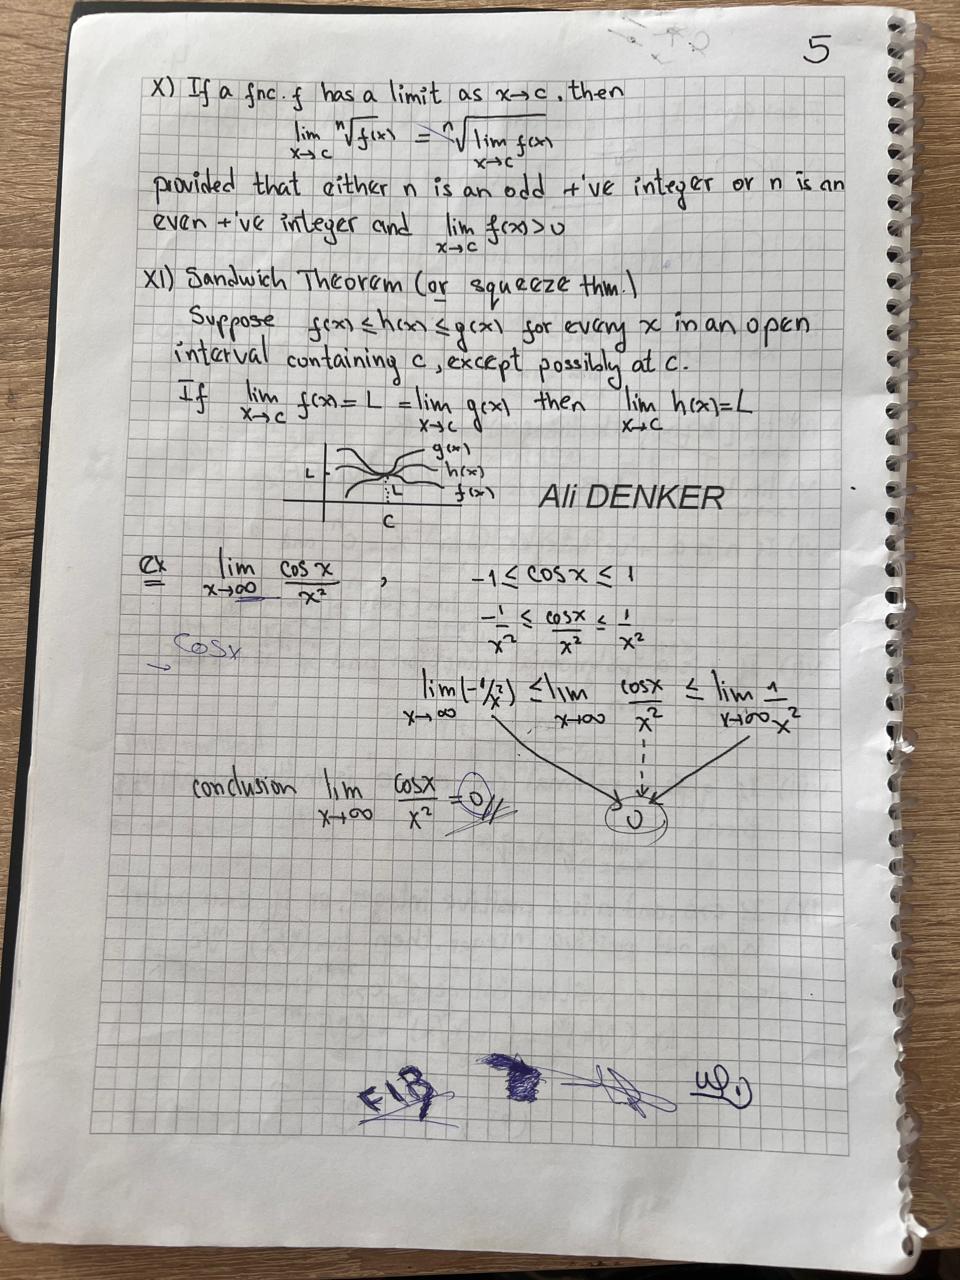 5
X) If a fnc. f has a limit as x→c, then
lim x→c ⁿ√f(x) = ⁿ√lim x→c f(x)
provided that either n is an odd +'ve integer or n is an
even +'ve integer and lim x→c f(x)>0
XI) Sandwich Theorem (or squeeze thm.)
Suppose f(x) ≤ h(x) ≤ g(x) for every x in an open
interval containing c, except possibly at c.
If lim x→c f(x) = L = lim x→c g(x) then lim x→c h(x)=L
g(x)
L h(x)
L f(x)
C
Ali DENKER
ex lim x→∞ cosx/x² , -1 ≤ cosx ≤ 1
-1/x² ≤ cosx/x² ≤ 1/x²
cosx
lim x→∞ (-1/x²) ≤ lim x→∞ cosx/x² ≤ lim x→∞ 1/x²
conclusion lim x→∞ cosx/x² = 0
0